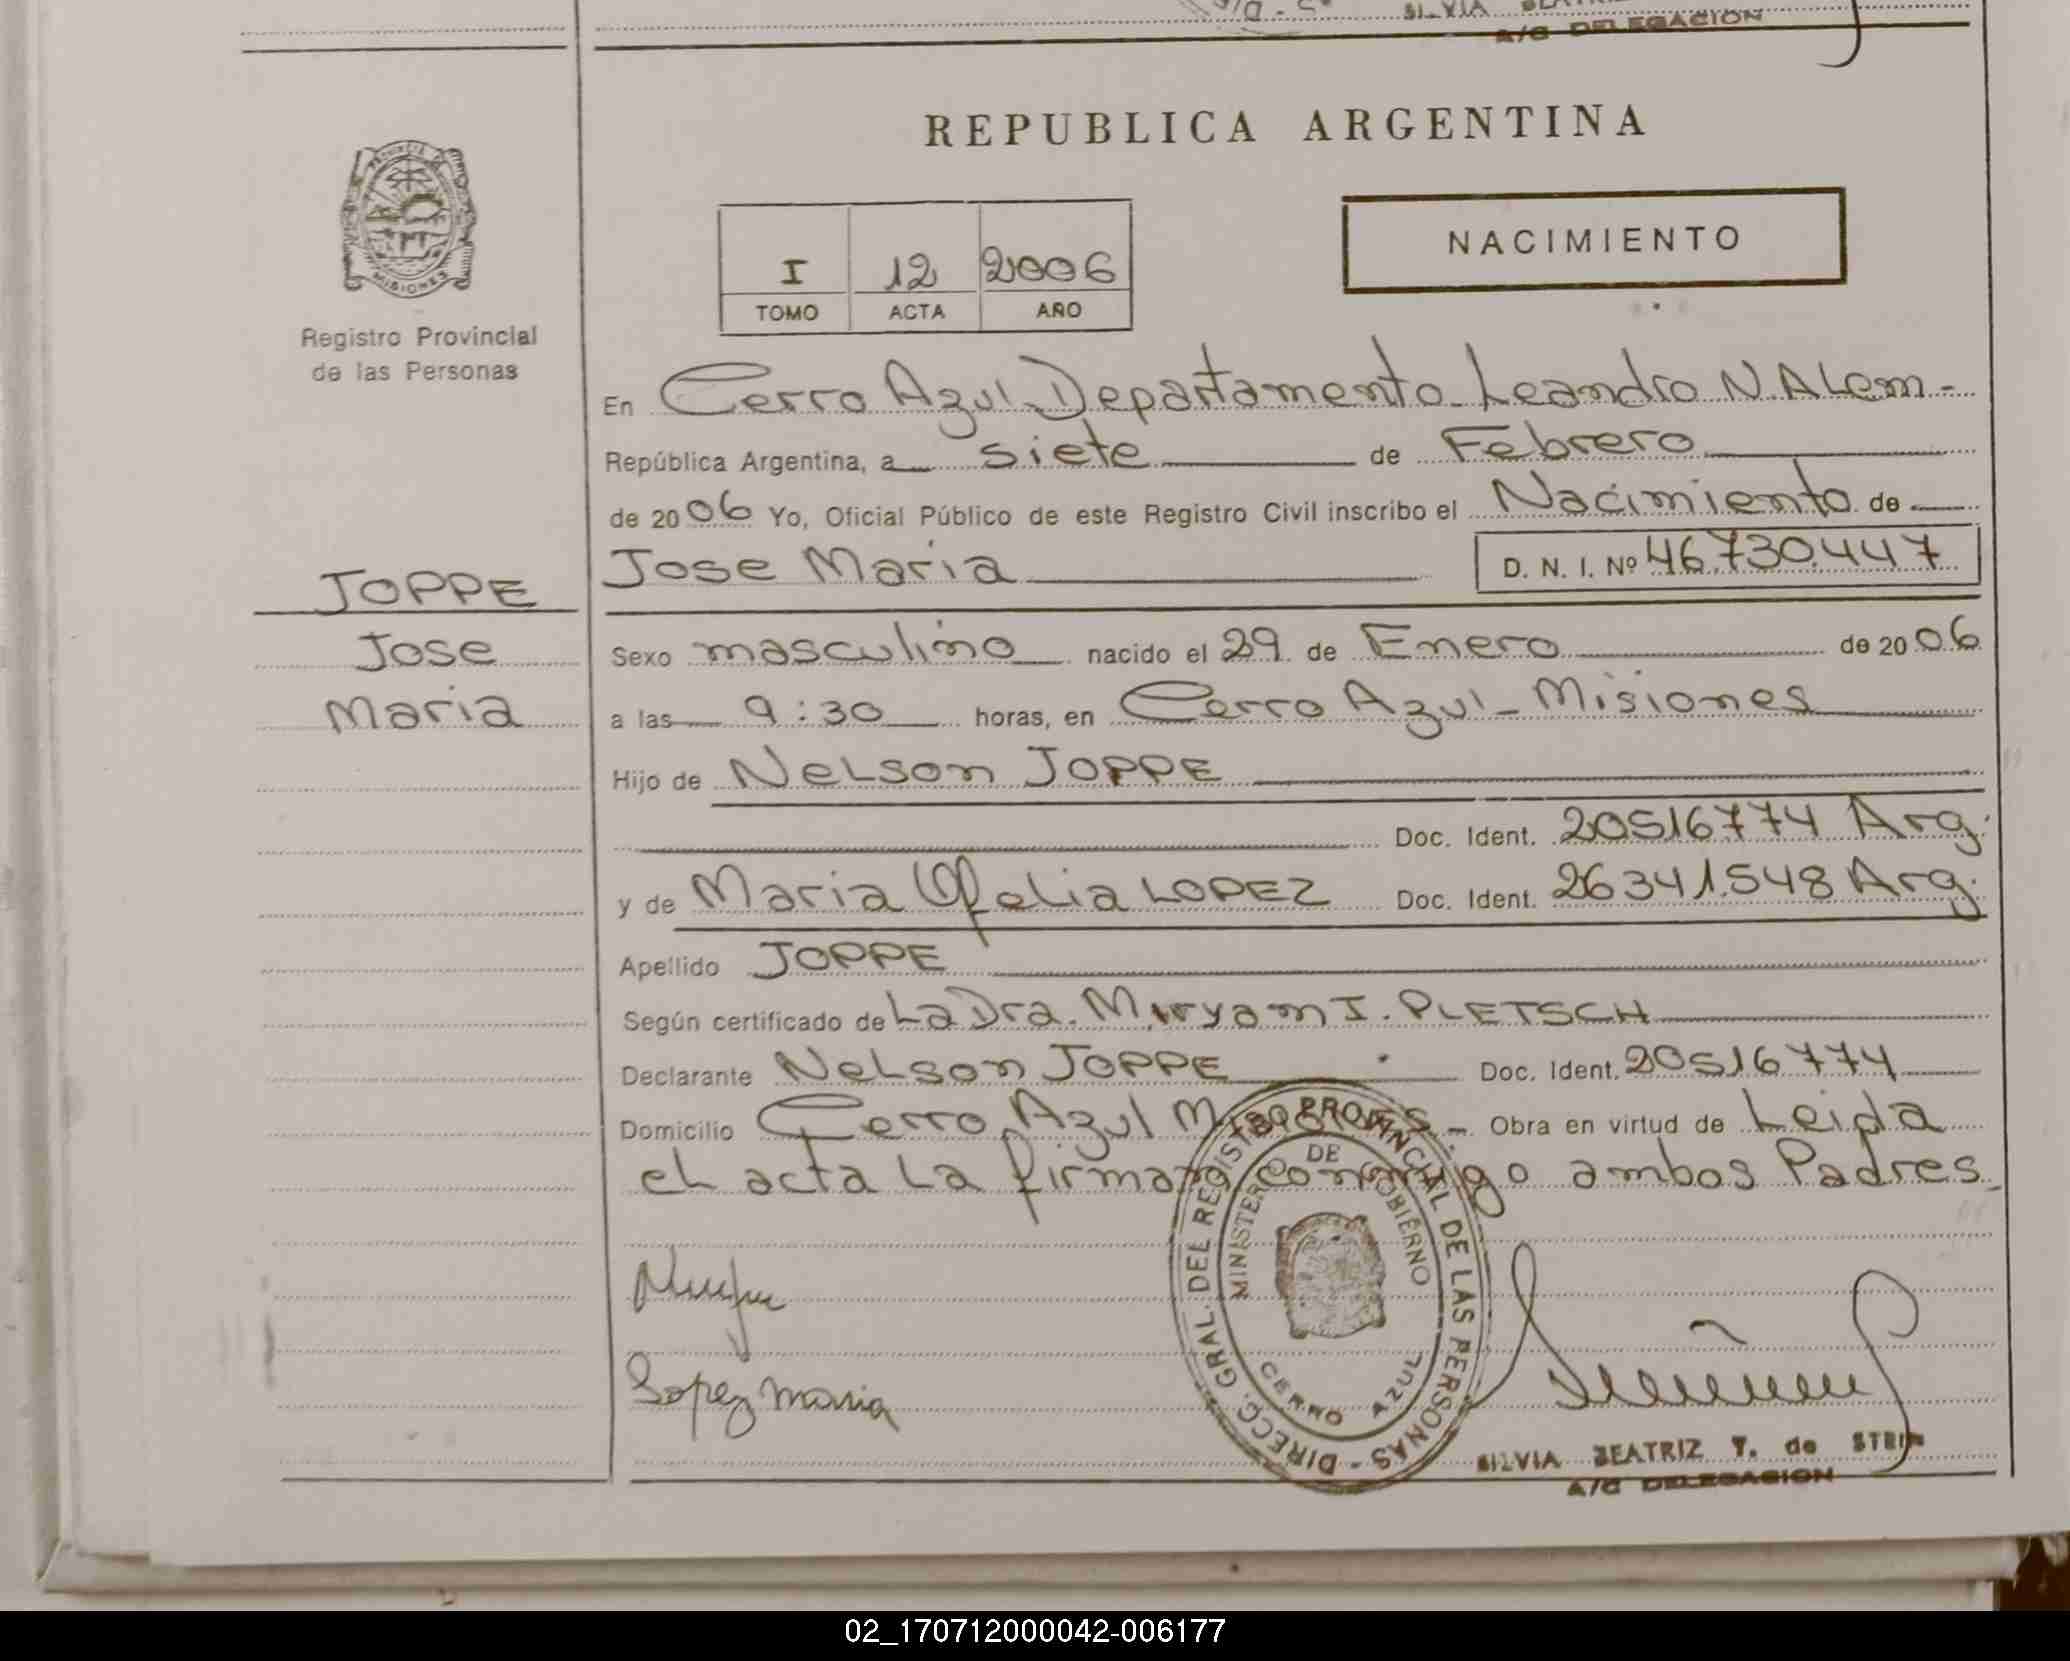 SILVIA
A/C DELEGACION
REPUBLICA ARGENTINA
PROVINCIA DE
MISIONES
Registro Provincial
de las Personas
I 12 2006
TOMO ACTA AÑO
NACIMIENTO
En Cerro Azul - Departamento Leandro N. ALem -
República Argentina, a siete de Febrero
de 2006 Yo, Oficial Público de este Registro Civil inscribo el Nacimiento de
Jose Maria D. N. I. Nº 46.730.447
JOPPE
Jose
Maria
Sexo masculino nacido el 29 de Enero de 2006
a las 9:30 horas, en Cerro Azul - Misiones
Hijo de NeLson JOPPE
Doc. Ident. 20516774 Arg.
y de Maria OfeLia LOPEZ Doc. Ident. 26341.548 Arg.
Apellido JOPPE
Según certificado de La Dra. Miryam I. PLETSCH
Declarante NeLson JOPPE Doc. Ident. 20516774
Domicilio Cerro Azul - Obra en virtud de Leida
eL acta La firman conmigo ambos Padres
Lopez maria
DIRECC. GRAL. DEL REGISTRO PROVINCIAL DE LAS PERSONAS -
MINISTERIO DE GOBIERNO
CERRO AZUL
SILVIA BEATRIZ T. de STEIN
A/C DELEGACION
02_170712000042-006177